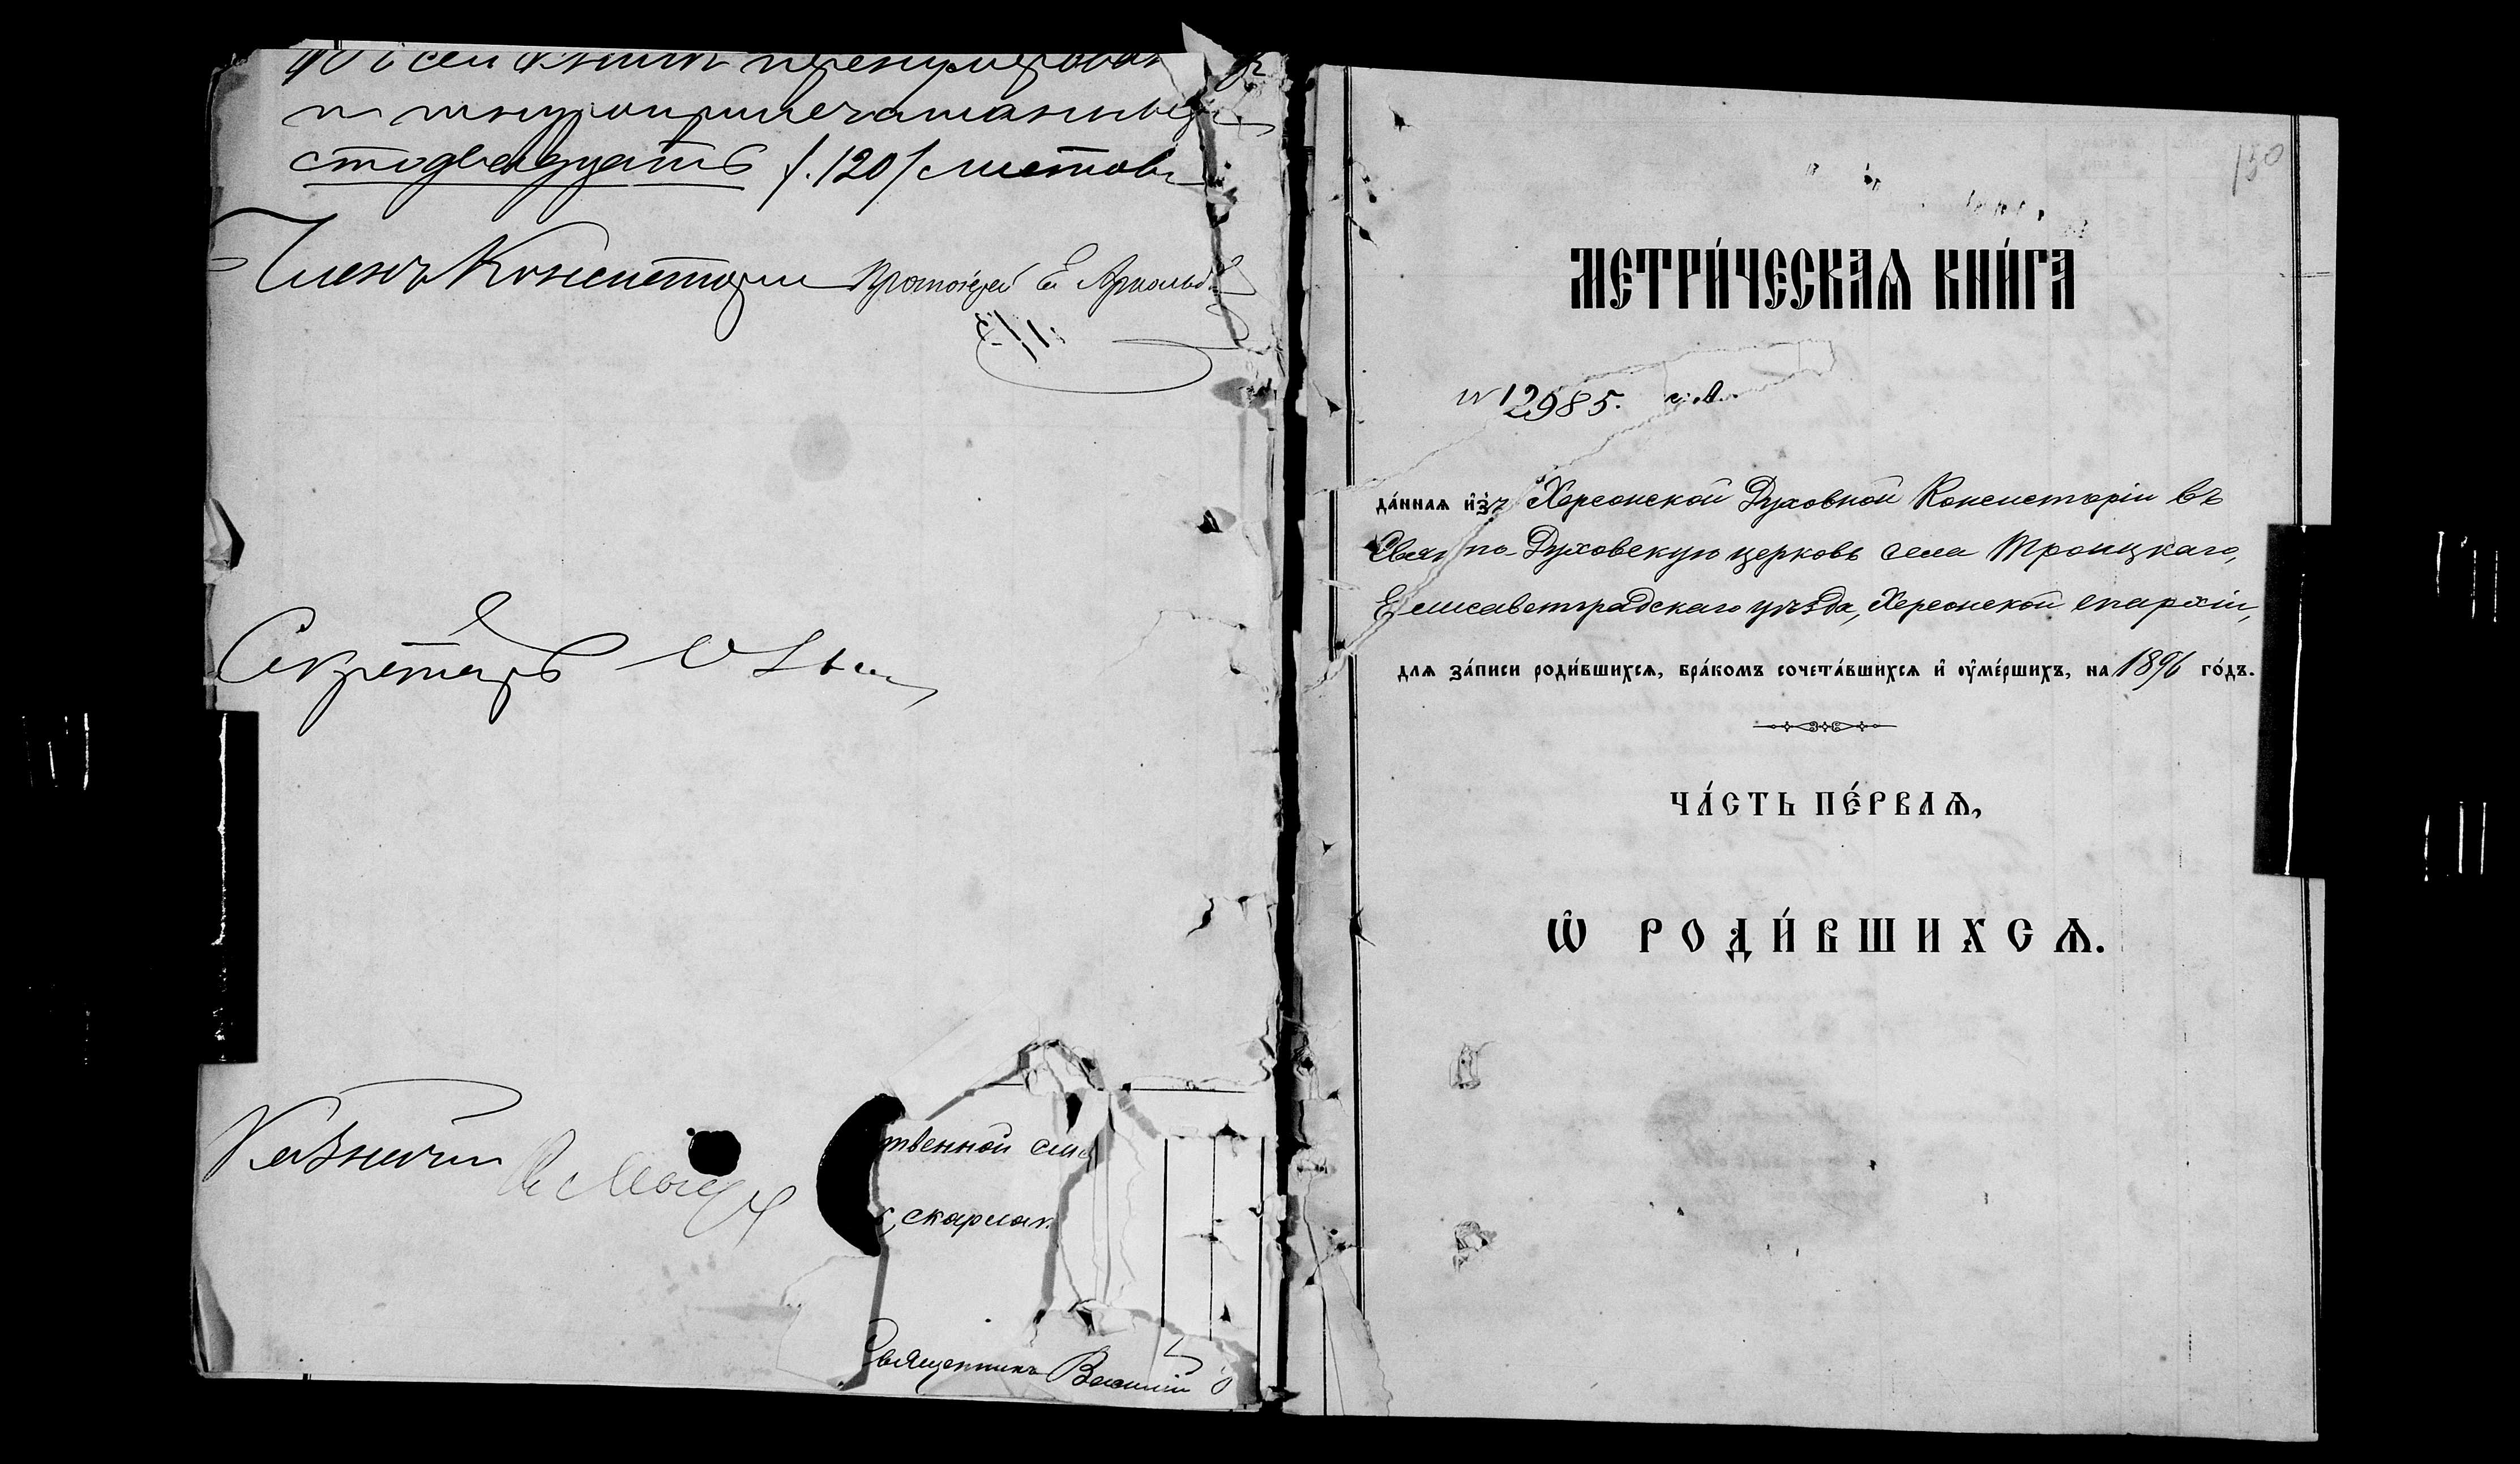 сей книгѣ пренумерован
и шнуроприпечатанныхъ
стодвадцать /.120/ листовъ
Членъ Консисторіи Протоіерей
Секретарь
Казначей
твенной
скарлат
Священникъ Василій
150
МЕТРИ́ЧЕСКАѦ КНИ́ГА
№ 12985.
да́ннаѧ и҆зъ Херсонской Духовной Консисторіи въ
Свято-Духовскую церковь села Троицкаго,
Елисаветградскаго уѣзда, Херсонской епархіи,
длѧ за́писи роди́вшихсѧ, бра́комъ сочета́вшихсѧ и҆ ᲂу҆ме́ршихъ, на 1896 го́дъ.
ЧА́СТЬ ПЕ́РВАѦ,
Ѽ РОДИ́ВШИХСѦ.